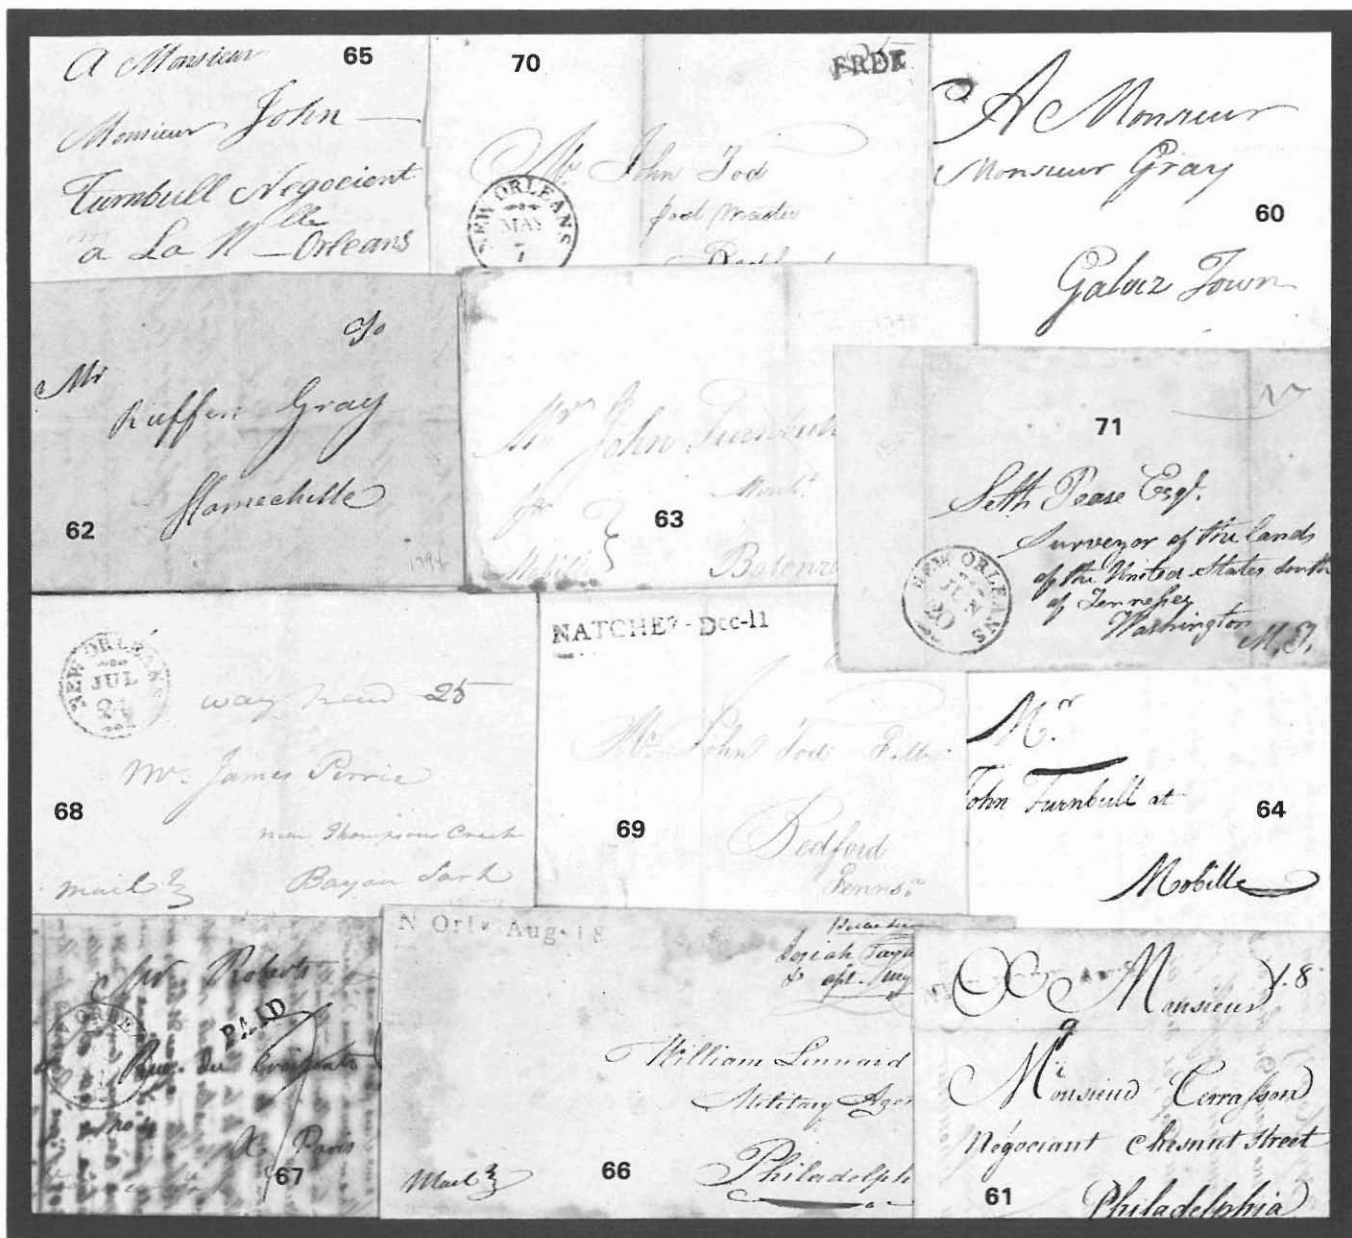 65
A Monsieur
Monsieur John
Turnbull Negocient
a La Nlle Orleans
70
FREE
Mr John Tod
post Master
NEW ORLEANS
MAY
7
60
A Monsieur
Monsieur Gray
Galvez Town
62
To
Mr
Ruffin Gray
Homechitte
1796
63
Mr John Turnbull
Mercht
for
Baton
71
Seth Pease Esqr.
Surveyor of the lands
of the United States South
of Tennessee
Washington
M.T.
NEW ORLEANS
JUN
68
NEW ORLEANS
JUL
way paid 25
Mr. James Perrie
near Thompsons Creek
Bayou Sarh
mail
69
NATCHEZ - Dec-11
Mr John Tod
Bedford
Penns.a
64
Mr.
John Turnbull at
Mobille
67
Mr Roberts
PAID
Rue du
A Paris
66
N Orls Aug. 18
Josiah
William Linnard
Military Agen
Philadelph
Mail
61
A Monsieur
Monsieur Terrasson
Négociant Chesnut Street
Philadelphia